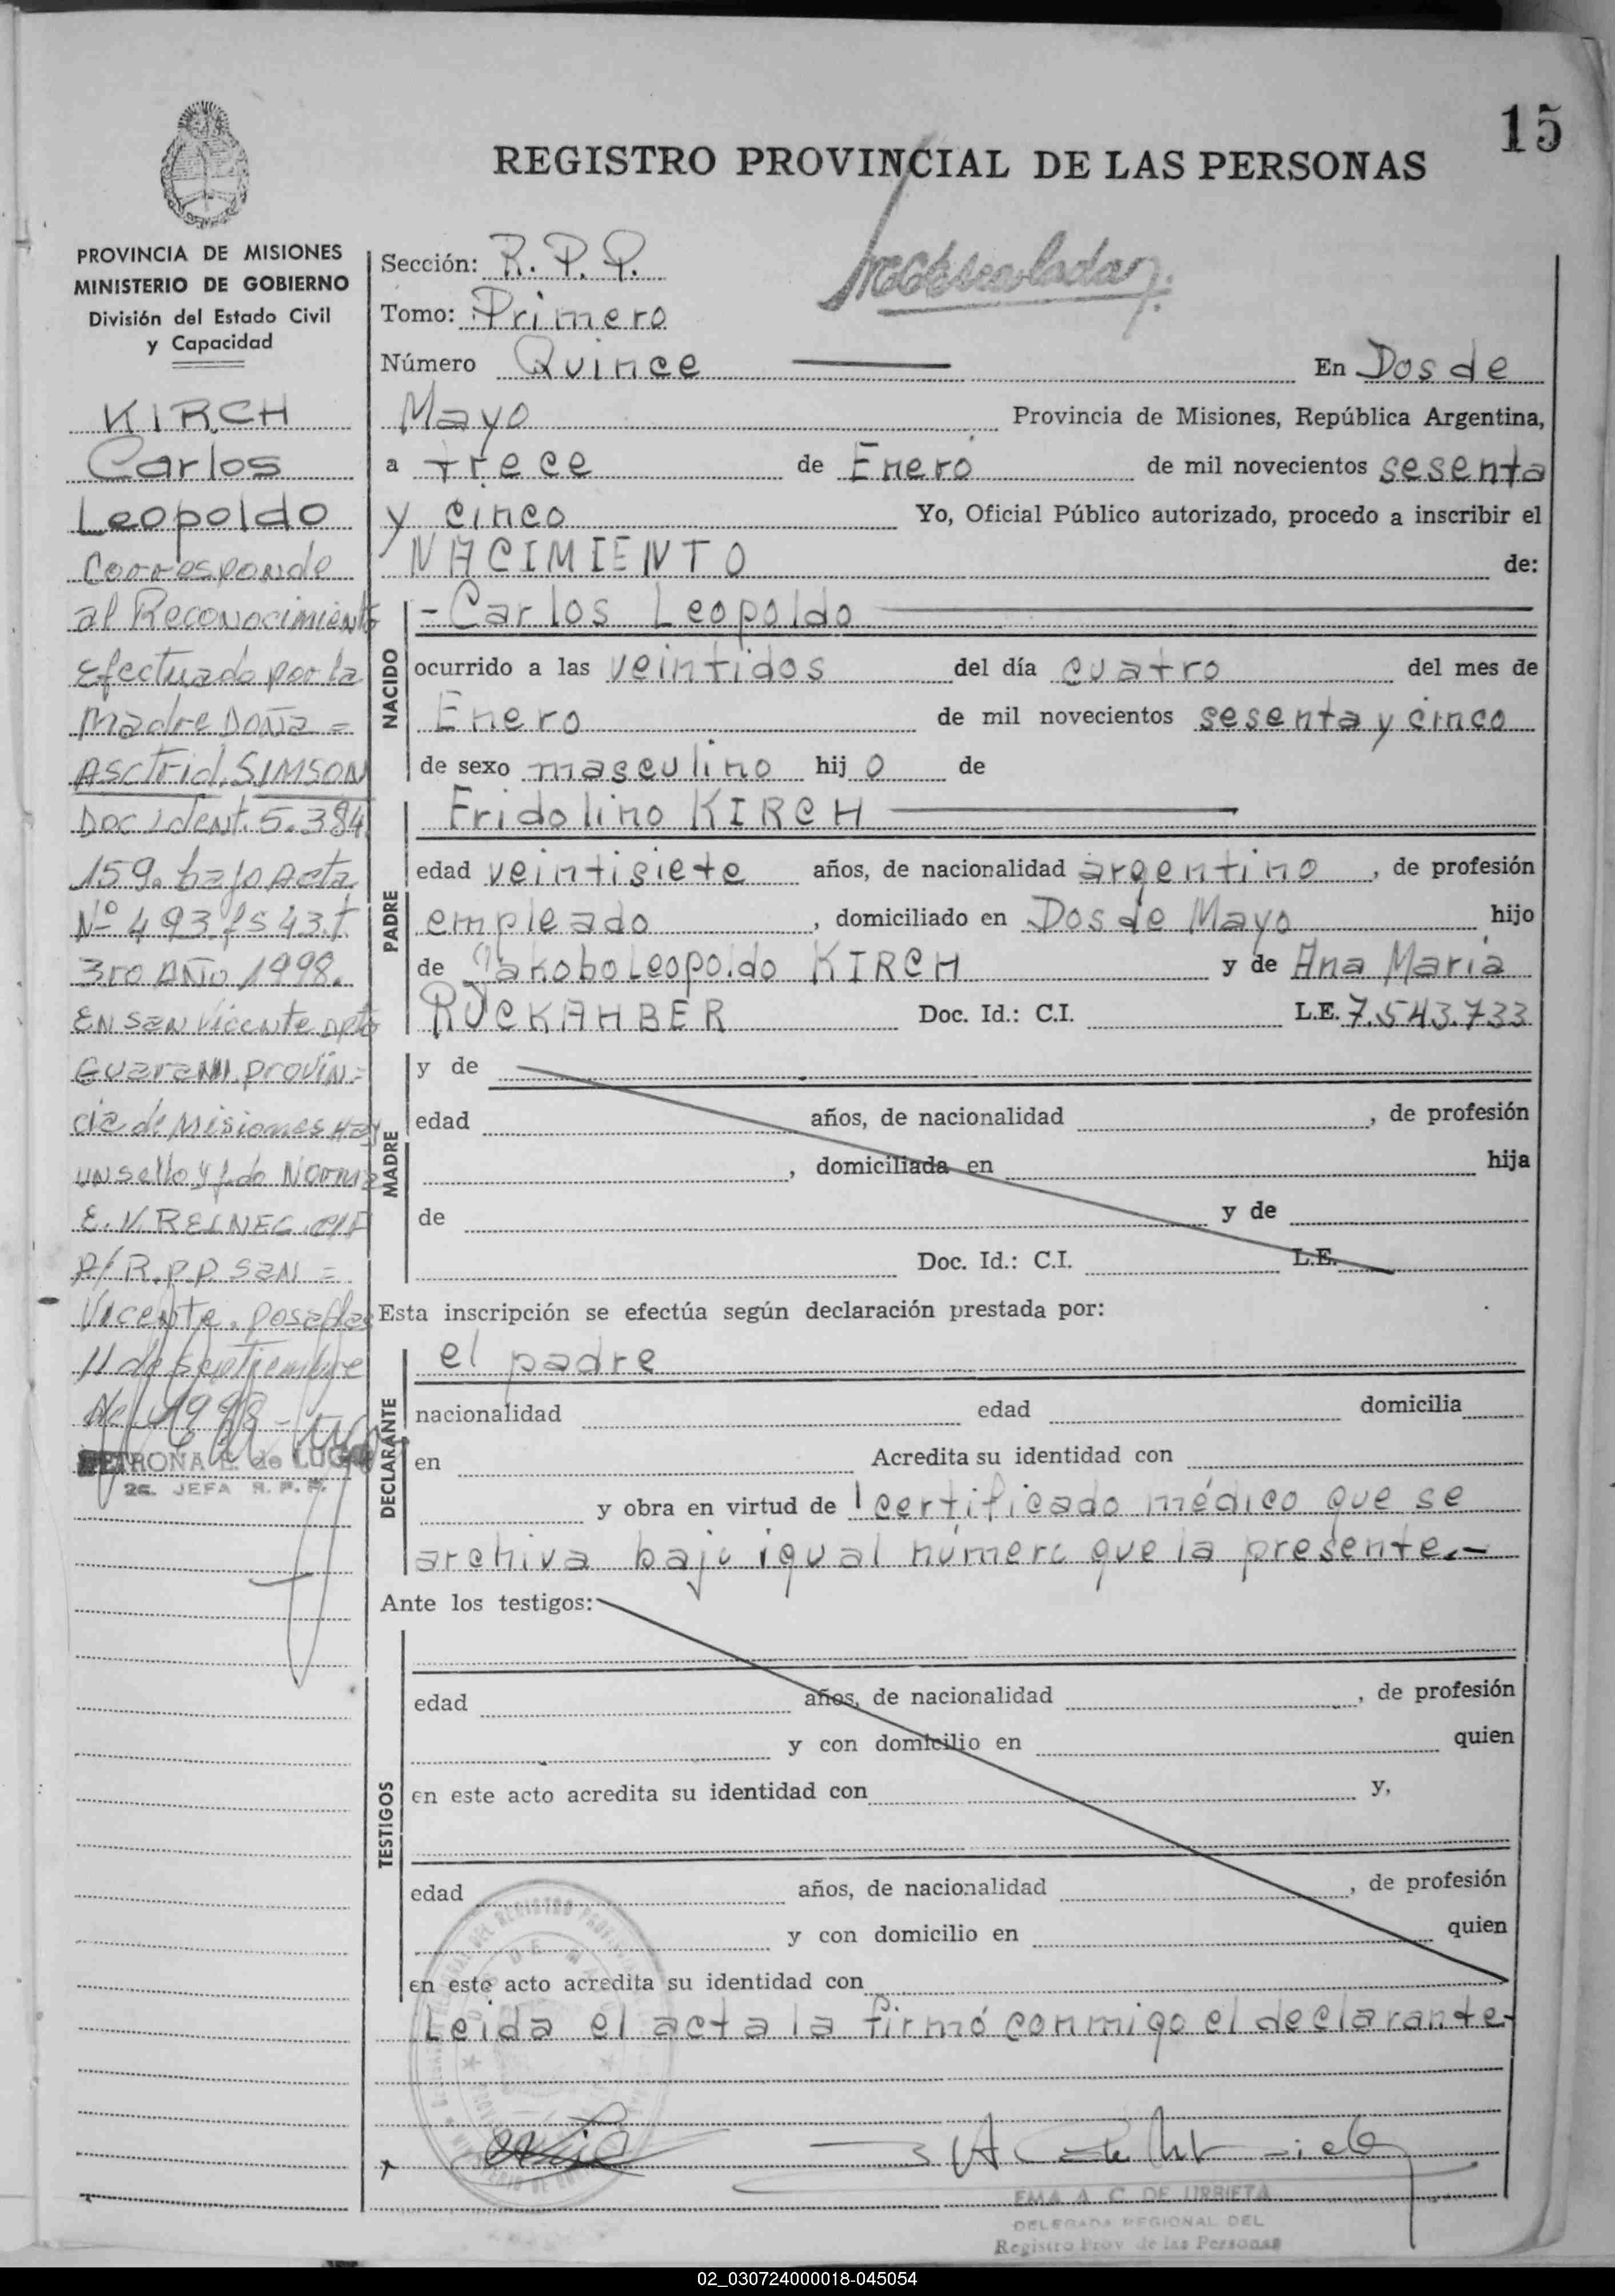 15
REGISTRO PROVINCIAL DE LAS PERSONAS
PROVINCIA DE MISIONES
MINISTERIO DE GOBIERNO
División del Estado Civil
y Capacidad
KIRCH
Carlos
Leopoldo
Corresponde
al Reconocimiento
Efectuado por la
Madre Doña =
Asctrid SIMSON
Doc ident. 5.384
159. bajo Acta
Nº 493 fs 43.t.
3ro AÑO 1998.
EN San Vicente Dpto
Guarani provin=
cia de Misiones Hay
un sello y fdo Norma
E. V. REINEC
A/ R.P.P San =
Vicente. Posadas
11 de Septiembre
de 1998 -
PETRONA E. de LUGO
2a. JEFA R. P. P.
Sección: R. P. P.
Tomo: Primero
Número Quince En Dos de
Mayo Provincia de Misiones, República Argentina,
a trece de Enero de mil novecientos sesenta
y cinco Yo, Oficial Público autorizado, procedo a inscribir el
NACIMIENTO de:
NACIDO
- Carlos Leopoldo
ocurrido a las veintidos del día cuatro del mes de
Enero de mil novecientos sesenta y cinco
de sexo masculino hij o de
PADRE
Fridolino KIRCH
edad veintisiete años, de nacionalidad argentino, de profesión
empleado, domiciliado en Dos de Mayo hijo
de Jakobo Leopoldo KIRCH y de Ana Maria
RUCKAHBER Doc. Id.: C.I. L.E. 7.543.733
MADRE
y de
edad años, de nacionalidad , de profesión
, domiciliada en hija
de y de
Doc. Id.: C.I. L.E.
Esta inscripción se efectúa según declaración prestada por:
DECLARANTE
el padre
nacionalidad edad domicilia
en Acredita su identidad con
y obra en virtud de 1 certificado médico que se
archiva bajo igual número que la presente.-
Ante los testigos:
TESTIGOS
edad años, de nacionalidad , de profesión
y con domicilio en quien
en este acto acredita su identidad con y,
edad años, de nacionalidad , de profesión
y con domicilio en quien
en este acto acredita su identidad con
Leida el acta la firmó conmigo el declarante-
EMA A. C. DE URBIETA
DELEGADA REGIONAL DEL
Registro Prov de las Personas
02_030724000018-045054